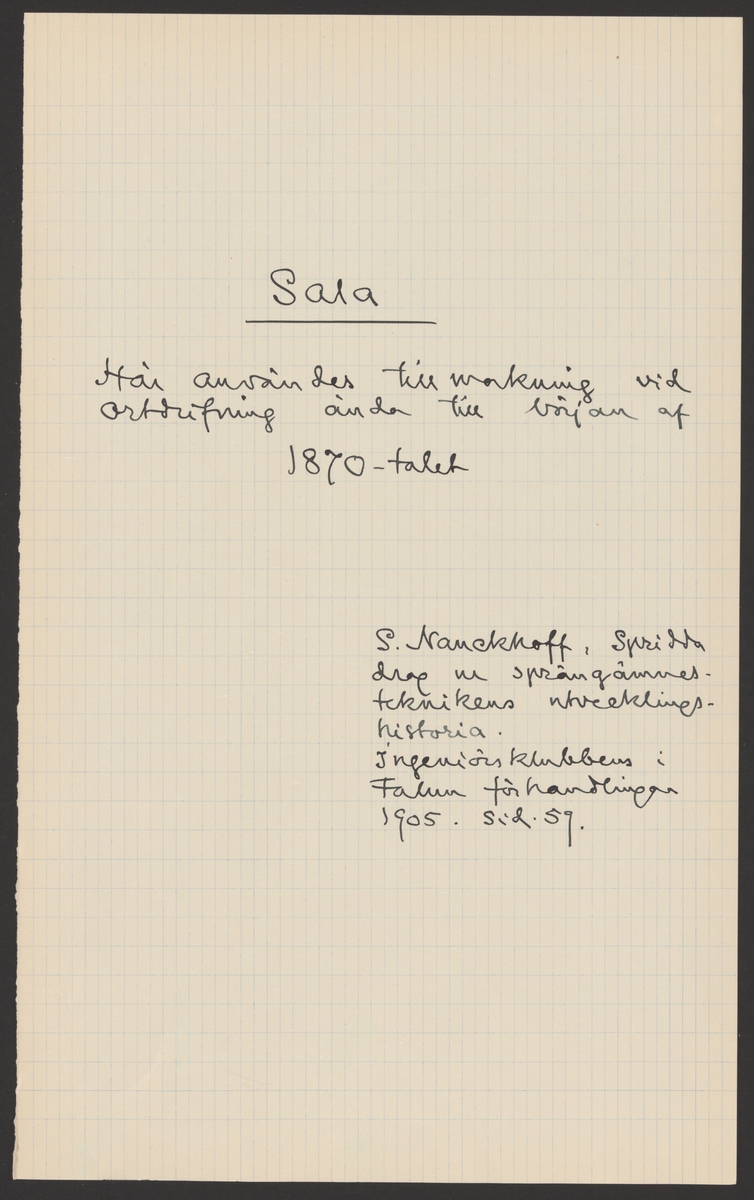 Sala
Här användes tillmakning vid
ortdrifning ända till början af
1870-talet
S. Nauckhoff, Spridda
drag ur sprängämnes-
teknikens utvecklings-
historia.
Ingeniörsklubbens i
Falun förhandlingar
1905. Sid. 59.